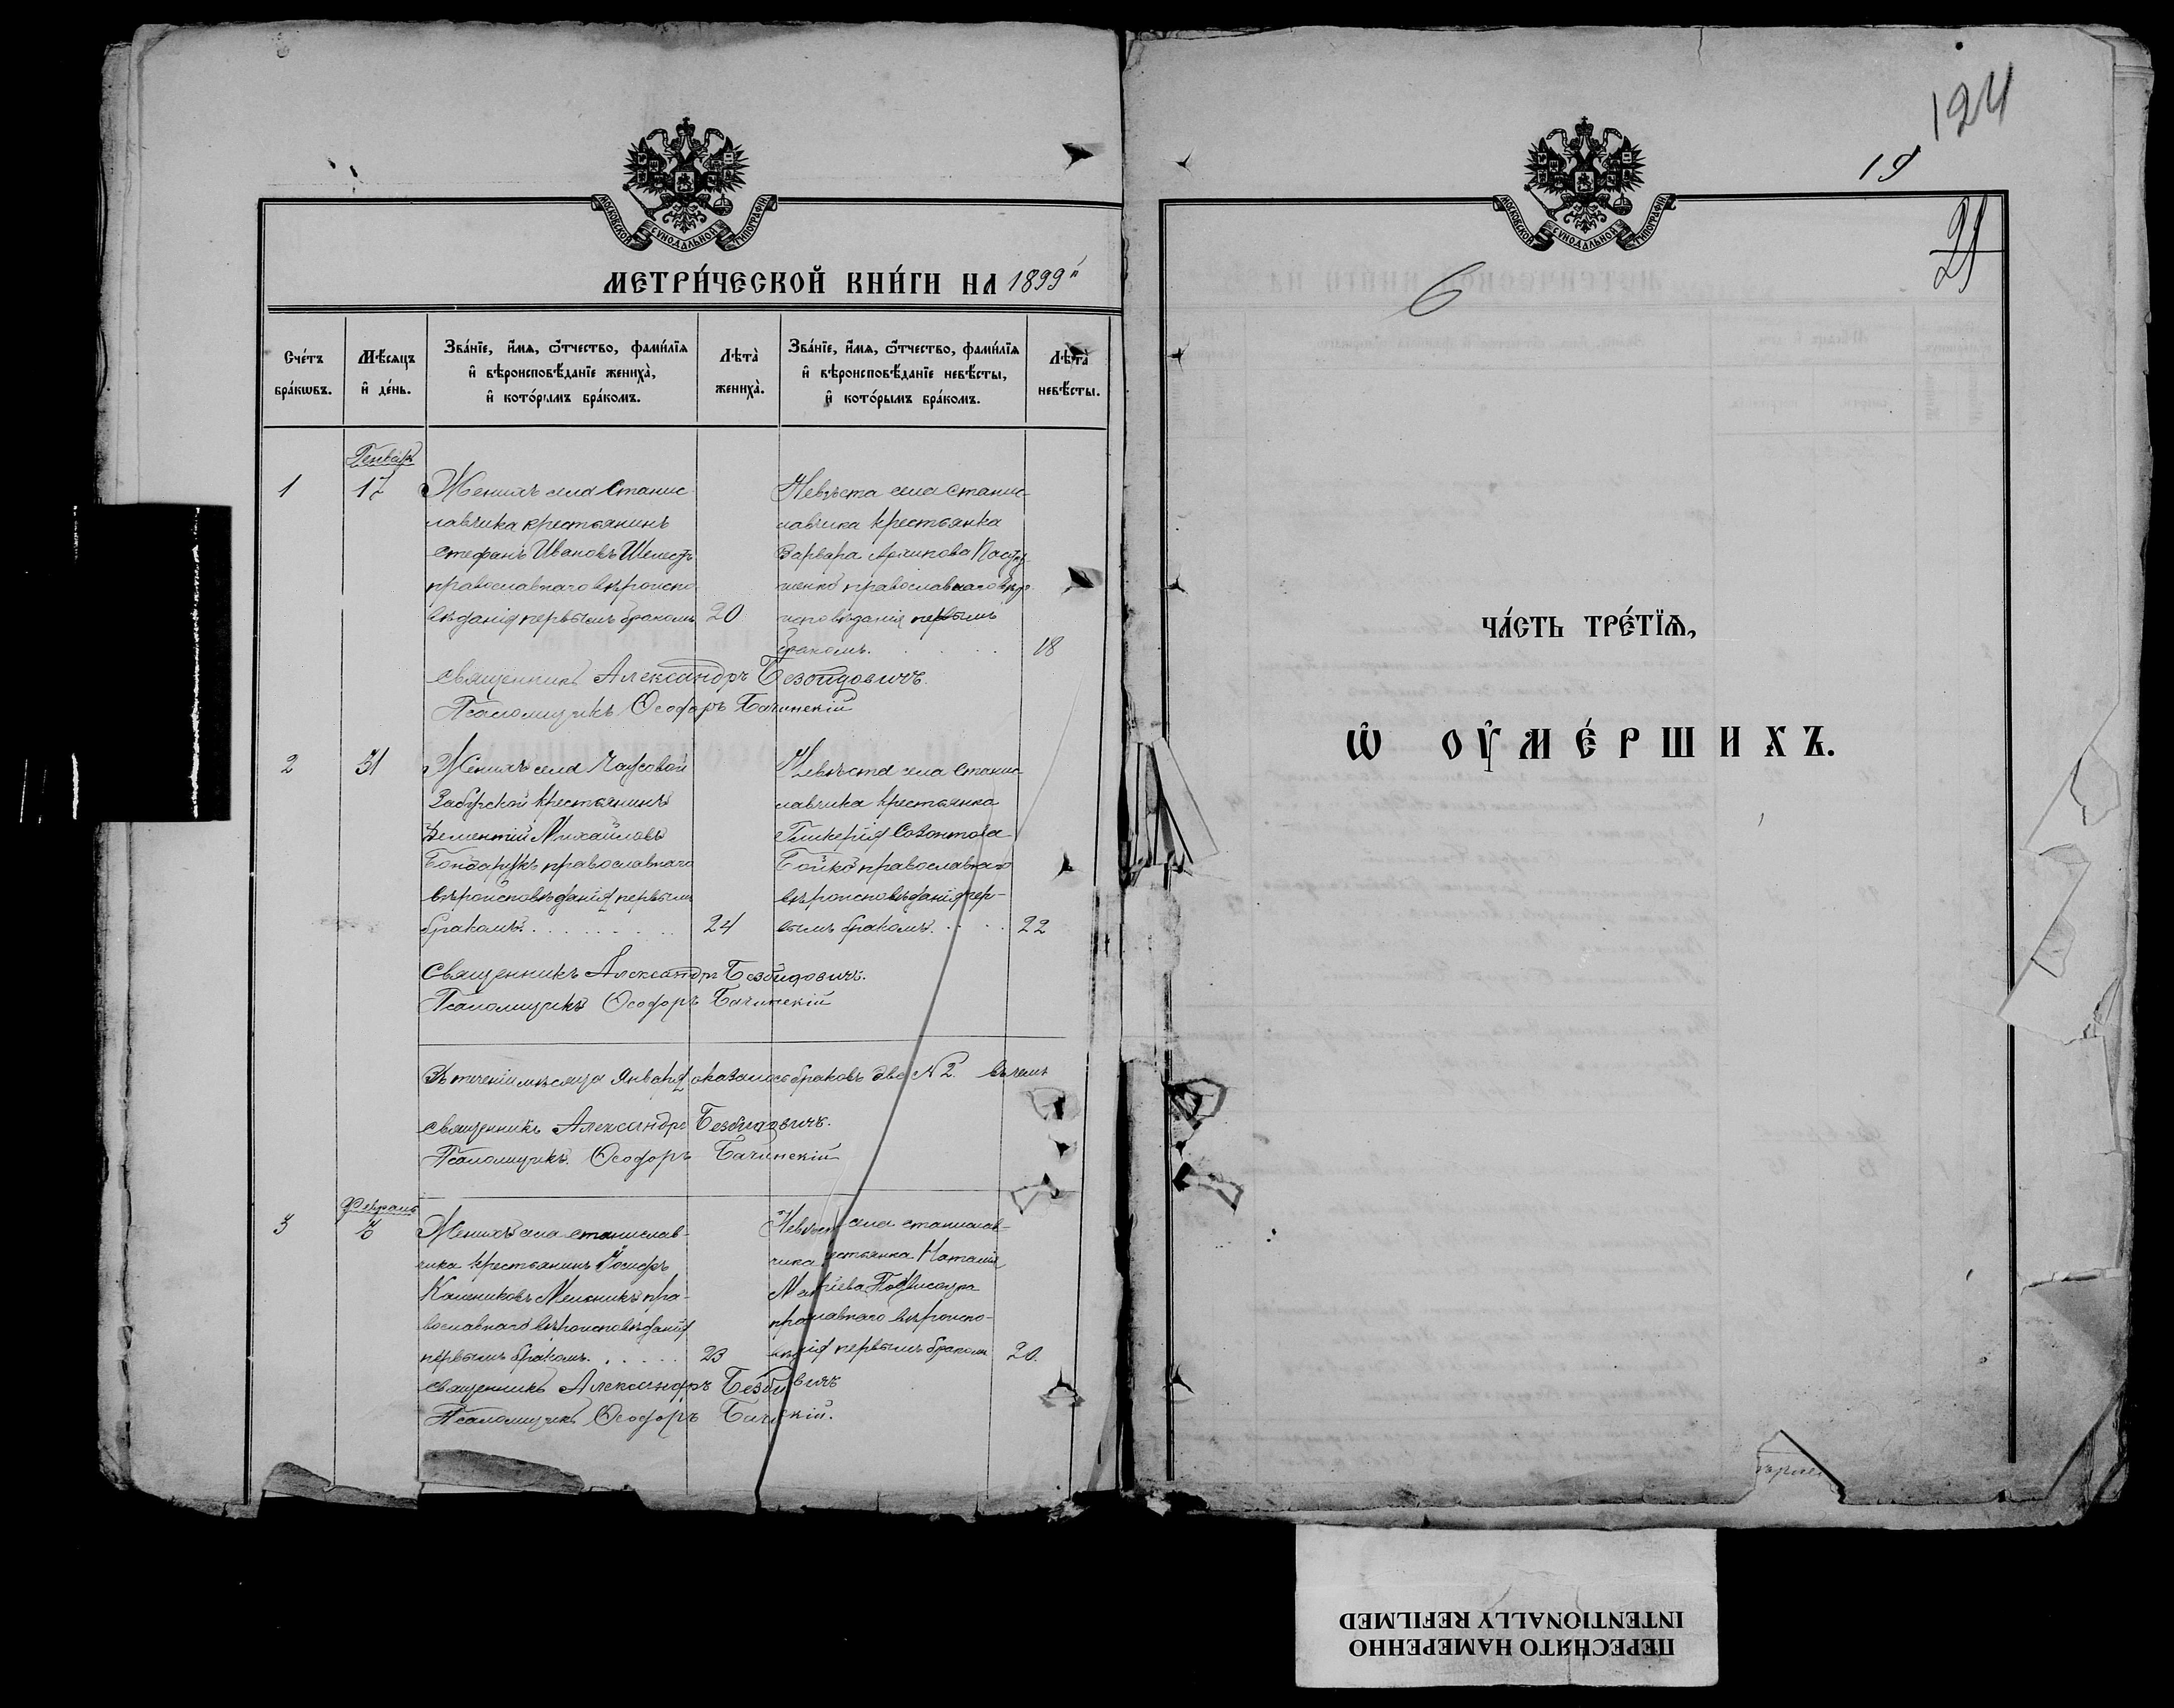 МОСКОВСКОЙ СѴНОДАЛЬНОЙ ТИПОГРАФІИ
МЕТРИ́ЧЕСКОЙ КНИ́ГИ НА 1899
Сче́тъ бра́кѡвъ.
Мѣ́сяцъ и҆ де́нь.
Зва́нїе, и҆́мя, ѻ҆́тчество, фами́лїя
и҆ вѣроисповѣ́данїе жениха̀,
и҆ кото́рымъ бра́комъ.
Лѣта̀ жениха̀.
Зва́нїе, и҆́мя, ѻ҆́тчество, фами́лїя
и҆ вѣроисповѣ́данїе невѣ́сты,
и҆ кото́рымъ бра́комъ.
Лѣта̀ невѣ́сты.
Генварь
1
17
Женихъ села Станис-
лавчика крестьянинъ
Стефанъ Ивановъ Шелестъ
православнаго вѣроиспо-
вѣданія первымъ бракомъ
20
Невѣста села Станис-
лавчика крестьянка
Варвара
православнаго вѣро-
исповѣданія первымъ
бракомъ.
18
Священникъ Александръ Безбидовичъ.
Псаломщикъ Ѳеодоръ Бачинскій
2
31
Женихъ села Чаусовой
Забугской крестьянинъ
Дементій Михайловъ
Бондарукъ православнаго
вѣроисповѣданія первымъ
бракомъ.
24
Невѣста села Станис-
лавчика крестьянка
Гликерія Созонтова
Бойко православнаго
вѣроисповѣданія пер-
вымъ бракомъ.
22
Священникъ Александръ Безбидовичъ.
Псаломщикъ Ѳеодоръ Бачинскій
Въ теченіи мѣсяца Января оказалось браковъ два № 2. въ чемъ
Священникъ Александръ Безбидовичъ.
Псаломщикъ Ѳеодоръ Бачинскій
Февраль
3
Женихъ села Станислав-
чика крестьянинъ Іосифъ
Калениковъ Мельникъ пра-
вославнаго вѣроисповѣданія
первымъ бракомъ.
23
села Станислав-
чика Наталія
первымъ бракомъ
20.
Священникъ Александръ
Псаломщикъ Ѳеодоръ
124
19
21
МОСКОВСКОЙ СѴНОДАЛЬНОЙ ТИПОГРАФІИ
6
ЧА́СТЬ ТРЕ́ТЇѦ,
Ѡ҆ ОУ҆МЕ́РШИХЪ.
ПЕРЕСНЯТО НАМЕРЕННО
INTENTIONALLY REFILMED